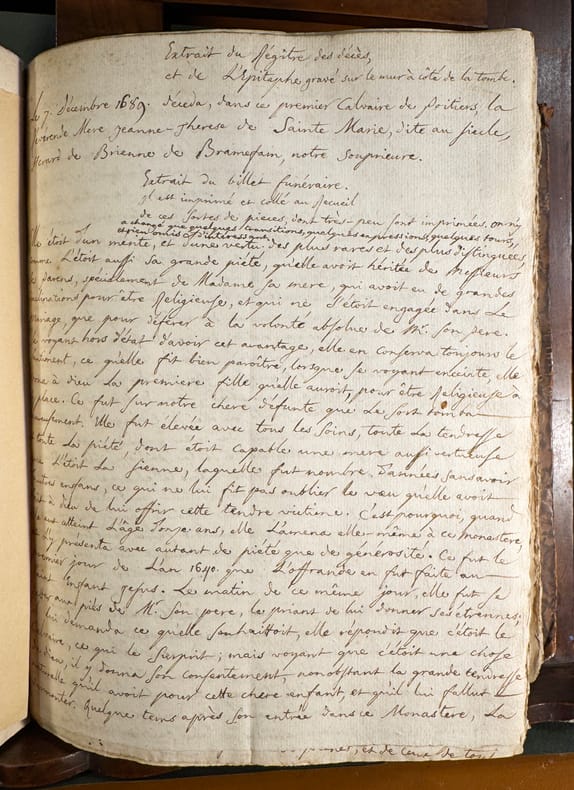 Extrait du Régitre des décès,
et de L'Epitaphe gravé sur le mur à côté de la tombe.
Le 7. décembre 1689. déceda, dans ce premier Calvaire de Poitiers, la
Reverende Mere, Jeanne-Therese de Sainte Marie, dite au siecle,
de Brienne de Bramefain, notre souprieure.
Extrait du billet funéraire.
Il est imprimé et collé au Recueil
de ces sortes de pieces, dont très-peu sont imprimées. on n'y
a changé que quelques transitions, quelques expressions, quelques tours,
et rien omis d'interessant.
Elle étoit d'un merite, et d'une vertu des plus rares et des plus distinguées
comme L'étoit aussi sa grande piété, qu'elle avoit héritée de Messieurs
ses parens, spécialement de Madame sa mere, qui avoit eu de grandes
inclinations pour être Religieuse, et qui ne s'étoit engagée dans Le
mariage, que pour déferer à la volonté absolue de Mr. son pere.
Se voyant hors d'état d'avoir cet avantage, elle en conserva toujours le
sentiment, ce qu'elle fit bien paroître, lorsque se voyant enceinte, elle
voua à dieu La premiere fille qu'elle auroit, pour être Religieuse a
sa place. Ce fut sur notre chere défunte que Le sort tomba
heureusement. Elle fut elevée avec tous les soins, toute La tendresse
et toute La piété, dont étoit capable une mere aussi vertueuse
que L'étoit La sienne, laquelle fut nombre d'années sans avoir
d'autres enfans, ce qui ne lui fit pas oublier le vœu qu'elle avoit
fait à dieu de lui offrir cette tendre victime. C'est pourquoi, quand
elle eut atteint L'âge d'onze ans, elle L'amena elle-même à ce Monastere,
et L'y présenta avec autant de piété que de générosité. Ce fut le
premier jour de L'an 1640. que L'offrande en fut faite au
saint Enfant Jesus. Le matin de ce même jour, elle fut se
jetter aux piés de Mr. son pere, le priant de lui donner ses étrennes.
Il lui demanda ce qu'elle souhaittoit, elle répondit que c'étoit le
Calvaire, ce qui le surprit; mais voyant que c'étoit une chose
de dieu, il y donna son consentement, nonobstant la grande tendresse
naturelle qu'il avoit pour cette chere enfant, et qu'il lui fallut
surmonter. Quelque tems après son entrée dans ce Monastere, La
et de ceux de tous